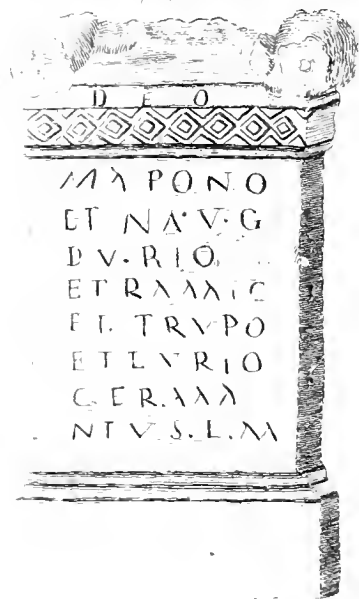 DEO
MAPONO
ET NA·V·G
DV·RIO
ET RAMIC
ET TRVPO
ET LVRIO
GER.MA
NI V S. L. M